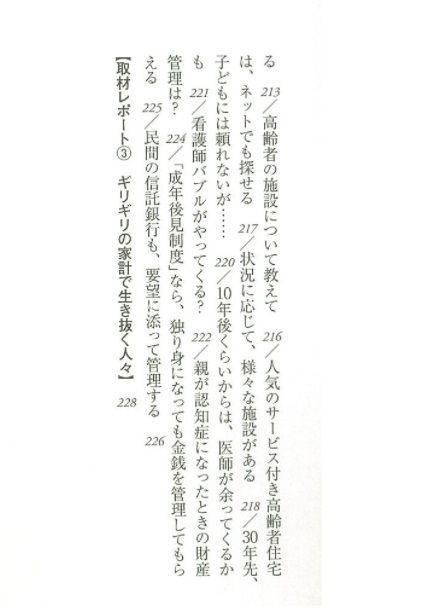 る 213／高齢者の施設について教えて 216／人気のサービス付き高齢者住宅
は、ネットでも探せる 217／状況に応じて、様々な施設がある 218／30年先、
子どもには頼れないが…… 220／10年後くらいからは、医師が余ってくるか
も 221／看護師バブルがやってくる? 222／親が認知症になったときの財産
管理は? 224／「成年後見制度」なら、独り身になっても金銭を管理してもら
える 225／民間の信託銀行も、要望に添って管理する 226
【取材レポート③ ギリギリの家計で生き抜く人々】 228